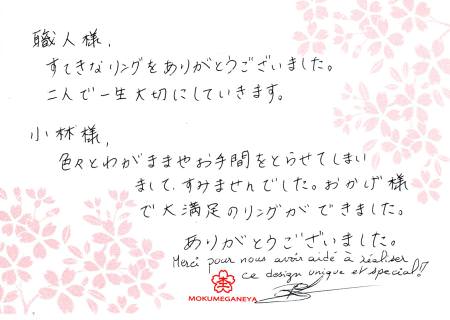 職人様,
すてきなリングをありがとうございました。
二人で一生大切にしていきます。
小林様,
色々とわがままやお手間をとらせてしまい
まして、すみませんでした。おかげ様
で大満足のリングができました。
ありがとうございました。
Merci pour nous avoir aidé à réaliser
ce design unique et special!!
MOKUMEGANEYA